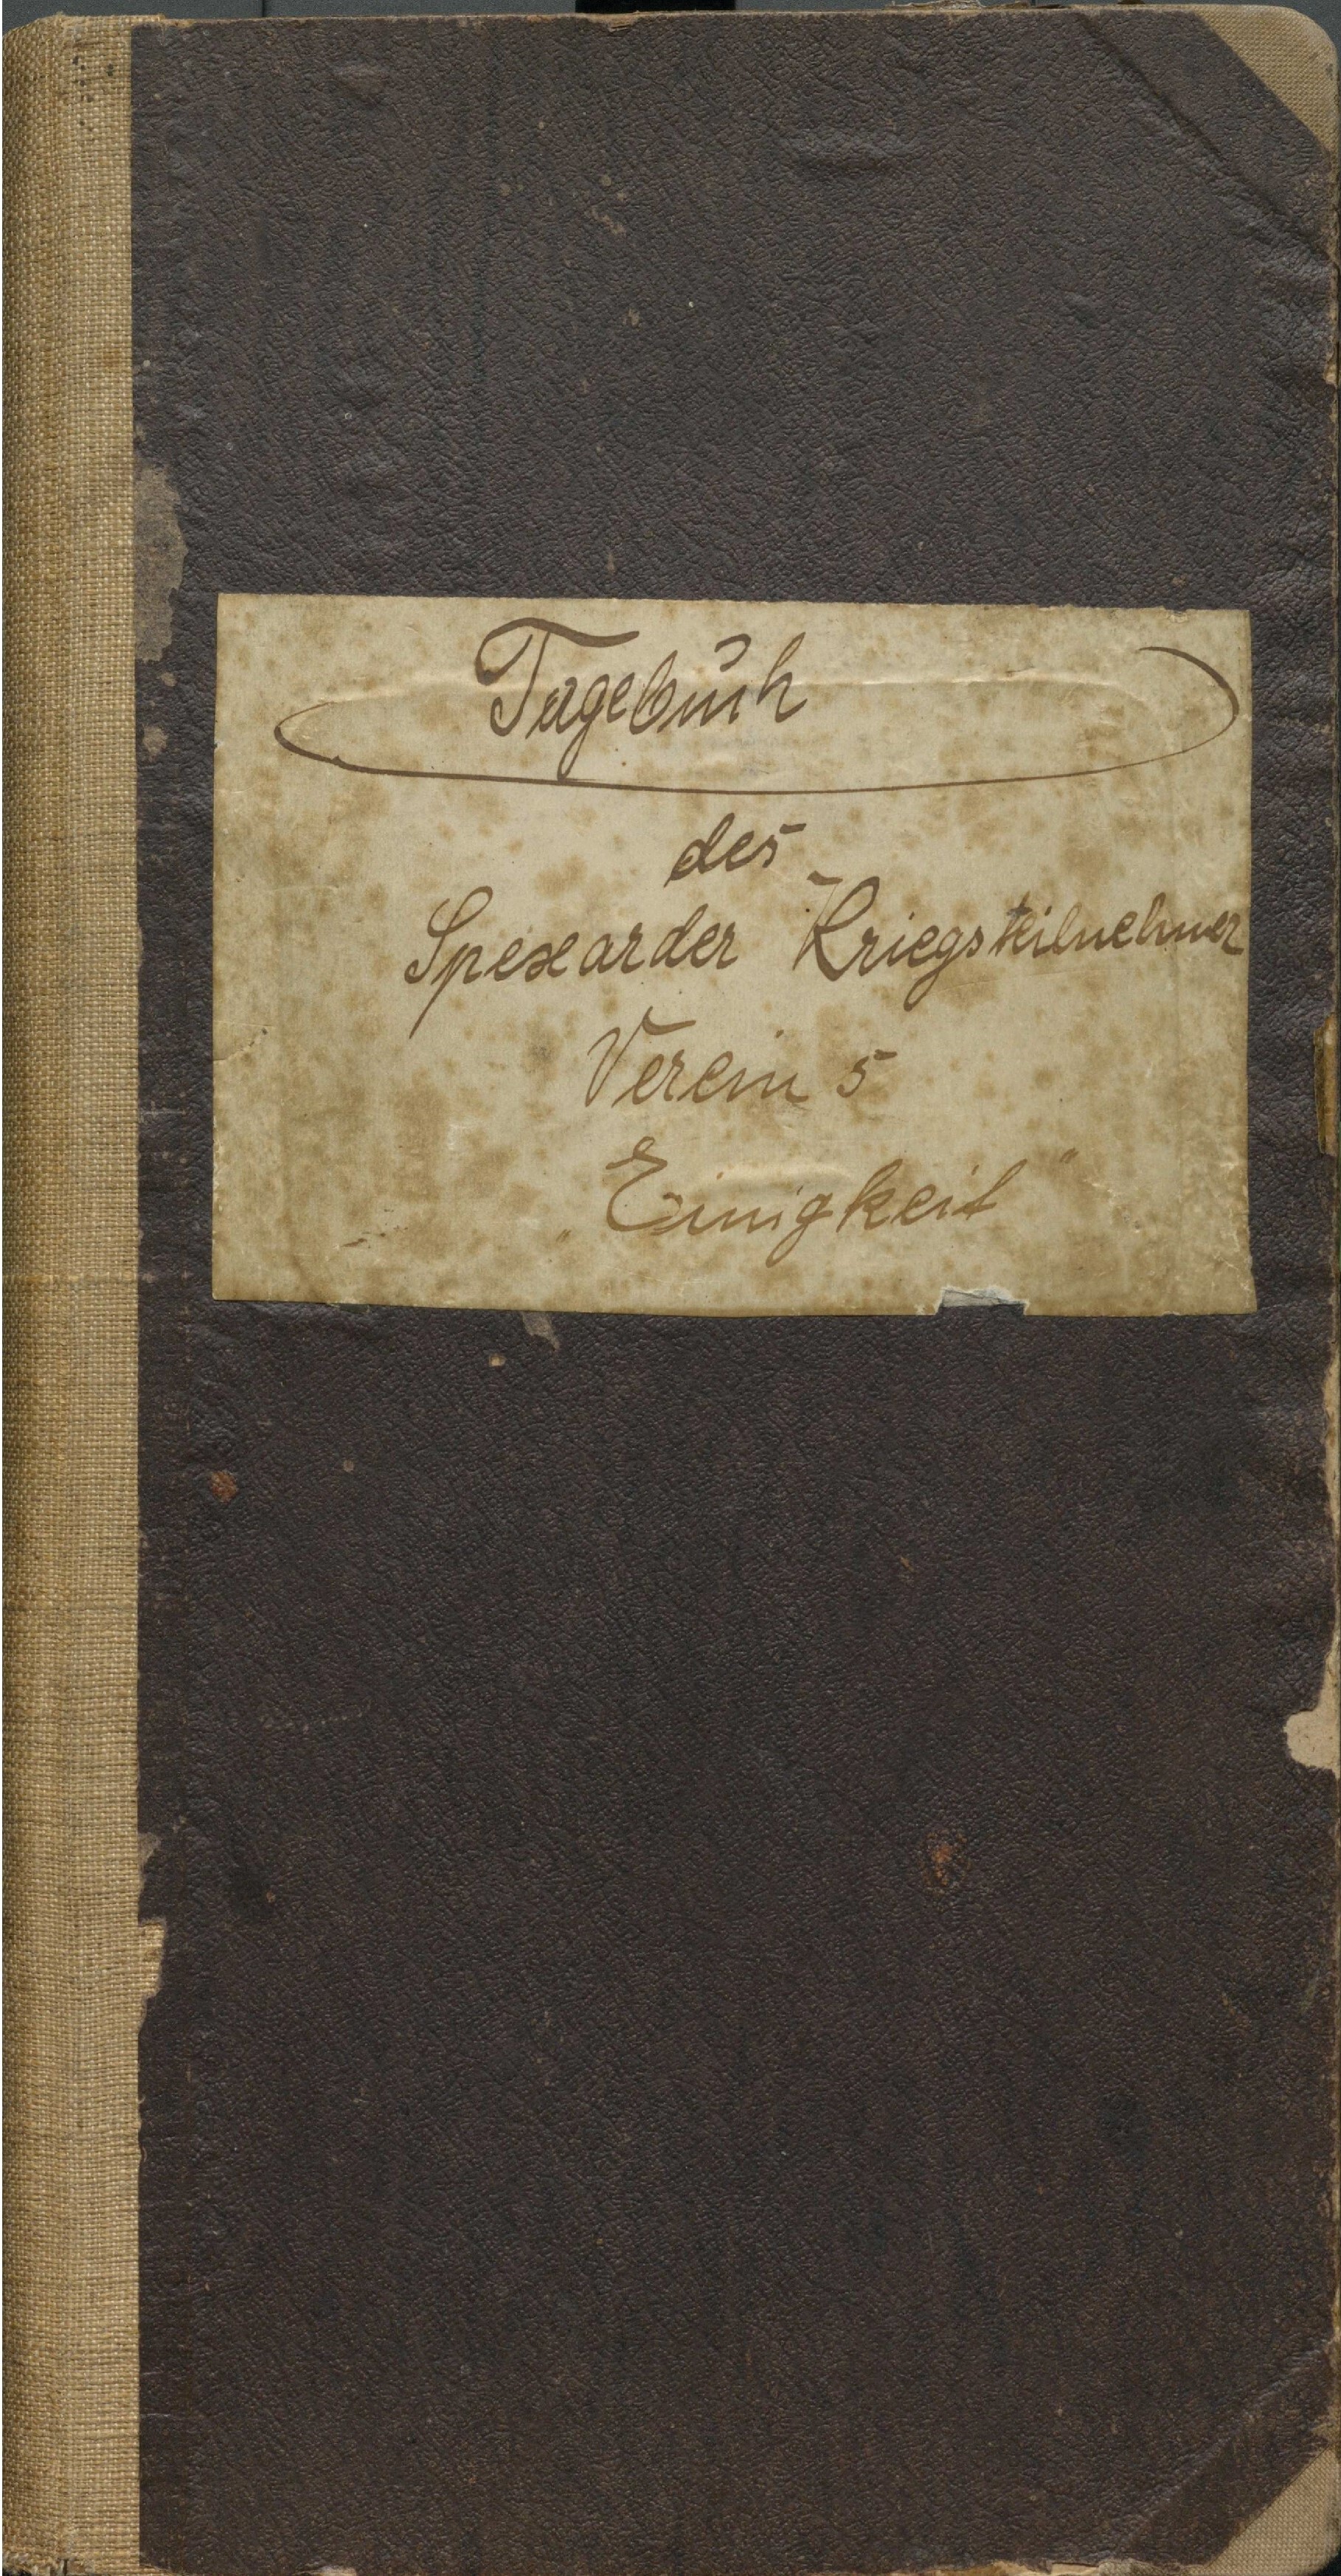 Tagebuch
des
Spexarder Kriegsteilnehmer
Verein s
„Einigkeit"